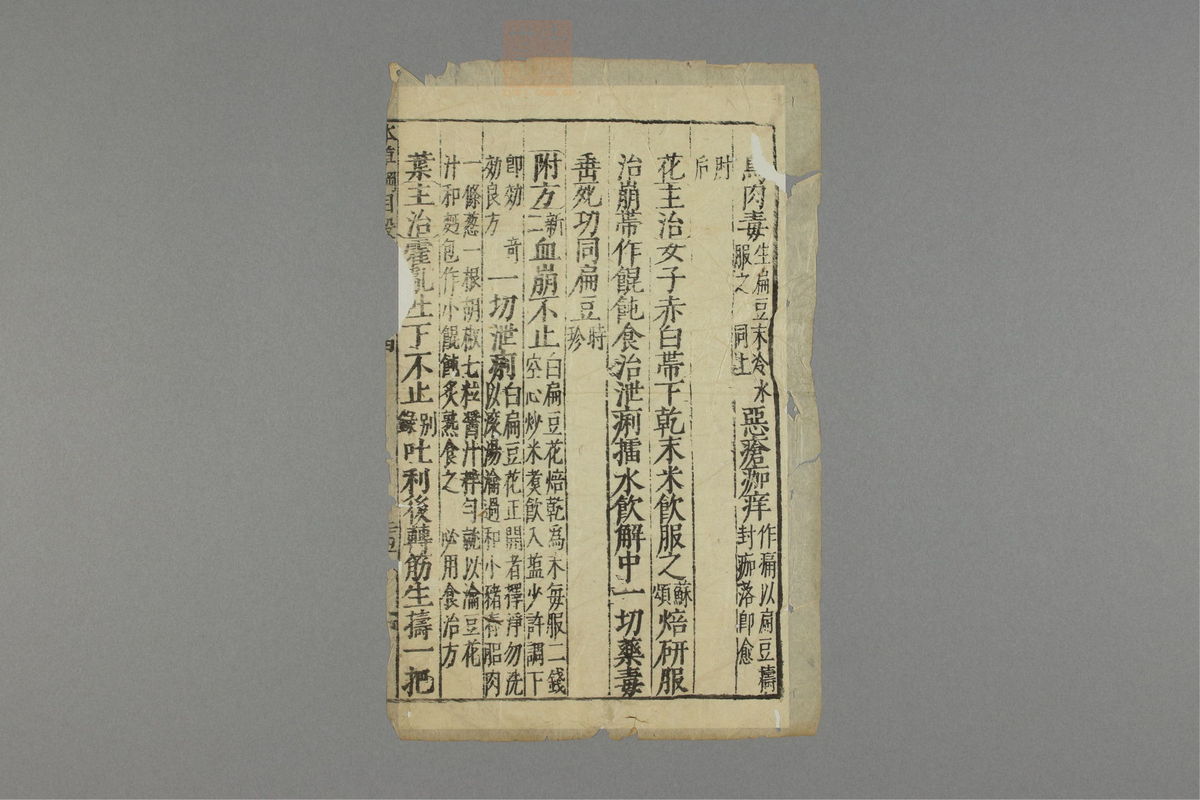 馬肉毒生扁豆末冷水服之同上惡瘡痂痒作痛以扁豆擣封痂落卽愈
肘后
花主治女子赤白帶下乾末米飲服之蘇頌焙研服
治崩帶作餛飩食治泄痢擂水飲解中一切藥毒
垂死功同扁豆時珍
附方新二血崩不止白扁豆花焙乾爲末每服二錢空心炒米煮飲入盐少許調下
卽效 奇效良方 一切泄痢白扁豆花正開者擇淨勿洗以滾湯瀹過和小豬脊䏰肉
一條葱一根胡椒七粒醬汁拌勻就以瀹豆花汁和麪包作小餛飩炙熟食之 必用食治方
葉主治霍亂吐下不止别錄吐利後轉筋生擣一把
本草綱目穀